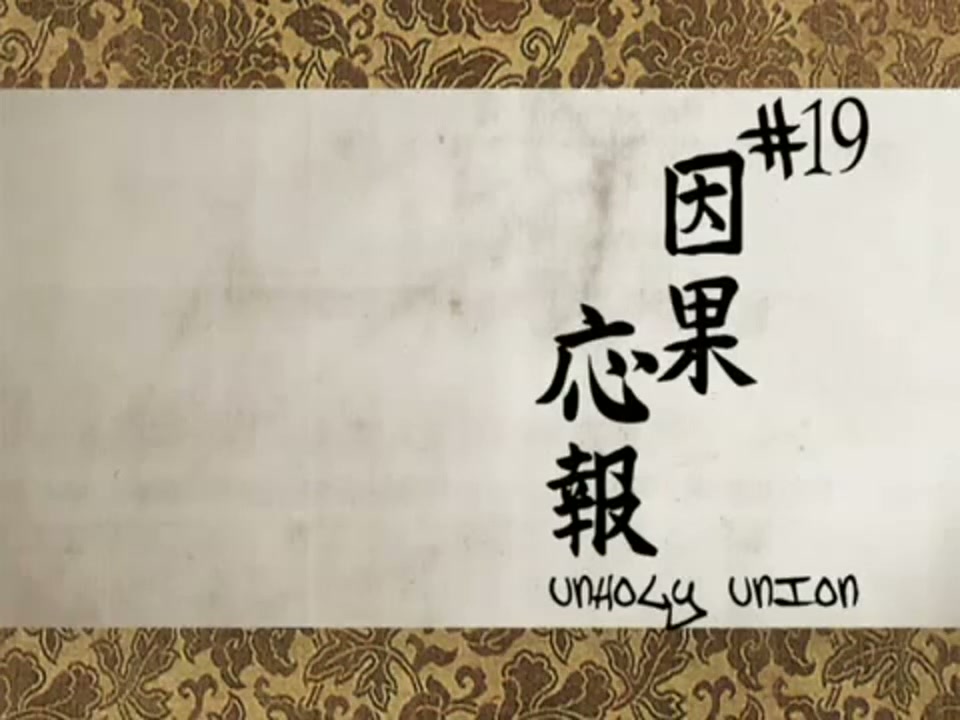 #19
因果
応報
UNHOLY UNION